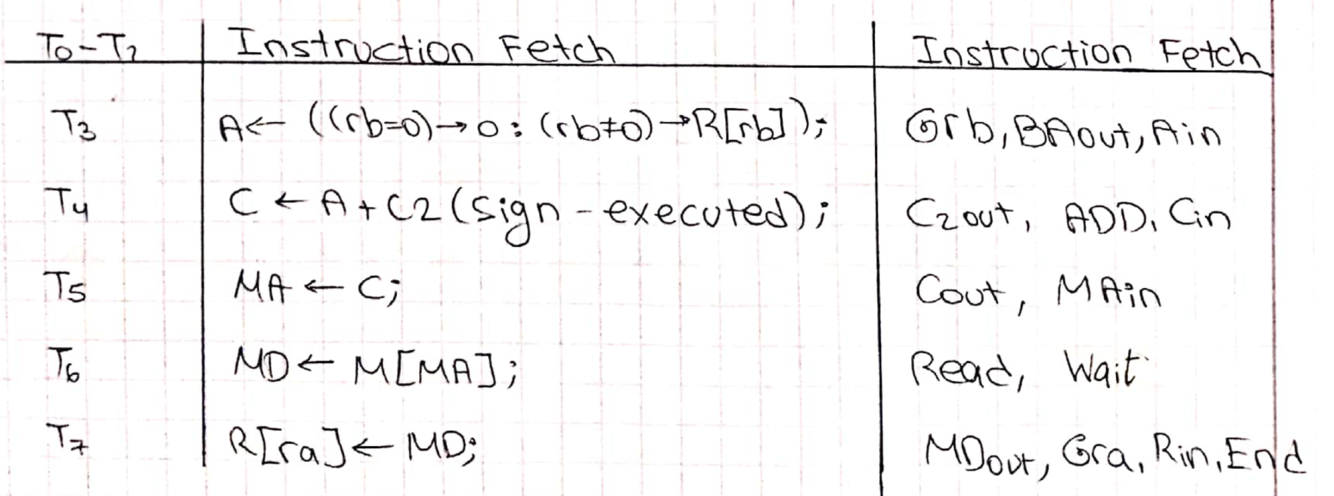 T0-T2 Instruction Fetch Instruction Fetch
T3 A← ((rb=0)→0: (rb≠0)→R[rb]); Grb, BAout, Ain
T4 C ← A + C2 (sign-executed); C2out, ADD, Cin
T5 MA ← C; Cout, MAin
T6 MD ← M[MA]; Read, Wait
T7 R[ra] ← MD; MDout, Gra, Rin, End